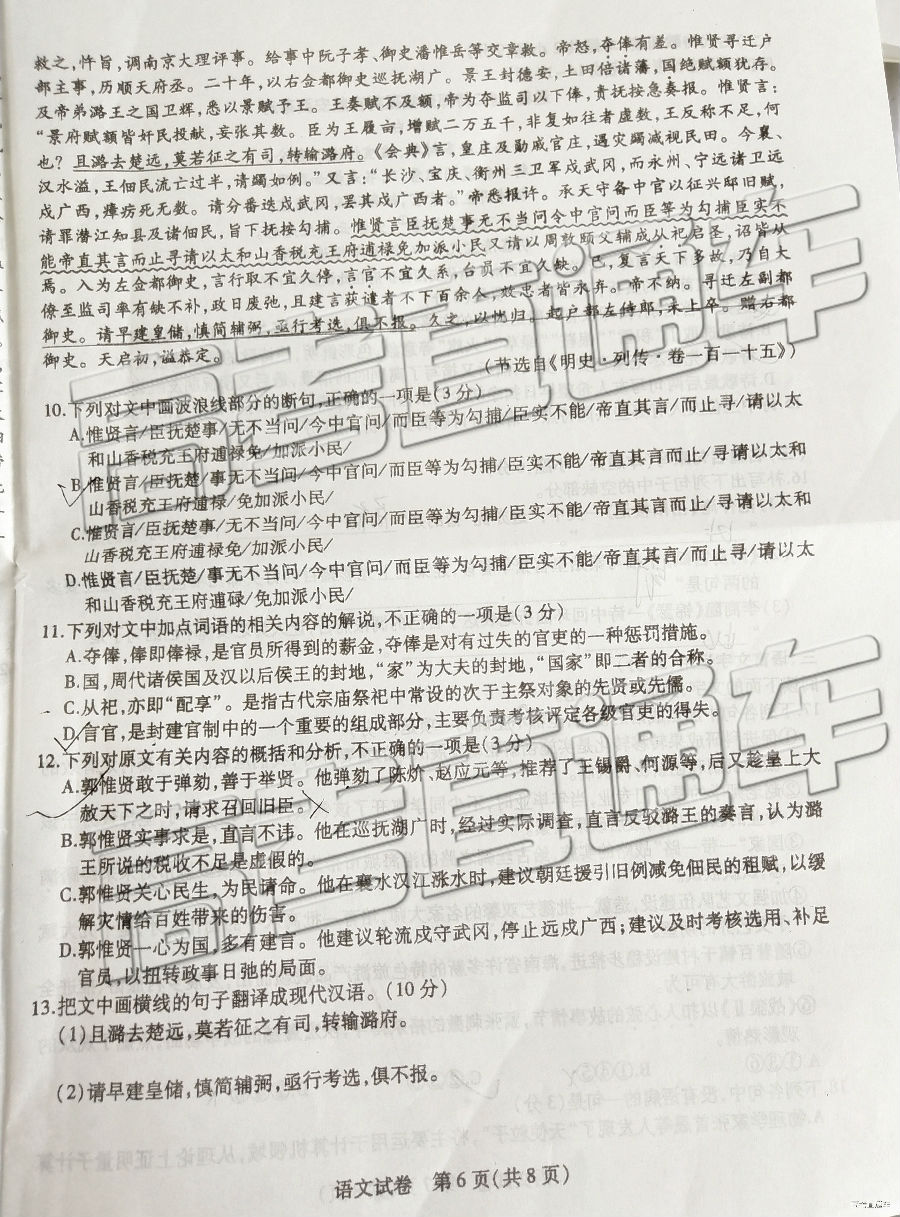 救之，忤旨，调南京大理评事。给事中阮子孝、御史潘惟岳等交章救。帝怒，夺俸有差。惟贤寻迁户
部主事，历顺天府丞。二十年，以右佥都御史巡抚湖广。景王封德安，土田倍诸藩，国绝赋额犹存。
及帝弟潞王之国卫辉，悉以景赋予王。王奏赋不及额，帝为夺监司以下俸，责抚按急奏报。惟贤言：
“景府赋额皆奸民投献，妄张其数。臣为王履亩，增赋二万五千，非复如往者虚数，王反称不足，何
也？且潞去楚远，莫若征之有司，转输潞府。《会典》言，皇庄及勋戚官庄，遇灾蠲减视民田。今襄、
汉水溢，王佃民流亡过半，请蠲如例。”又言：“长沙、宝庆、衡州三卫军戍武冈，而永州、宁远诸卫远
戍广西，瘴疠死无数。请分番迭戍武冈，罢其戍广西者。”帝悉报许。承天守备中官以征兴邸旧赋，
请罪潜江知县及诸佃民，旨下抚按勾捕。惟贤言臣抚楚事无不当问今中官问而臣等为勾捕臣实不
能帝直其言而止寻请以太和山香税充王府逋禄免加派小民又请以周敦颐父辅成从祀启圣，诏皆从
焉。入为左佥都御史，言行取不宜久停，言官不宜久系，台员不宜久缺。已，复言天下多故，乃自大
僚至监司率有缺不补，政日废弛，且建言获谴者不下百余人，效忠者皆永弃。帝不纳。寻迁左副都
御史。请早建皇储，慎简辅弼，亟行考选，俱不报。久之，以忧归。起户部左侍郎，未上卒。赠右都
御史。天启初，谥恭定。
（节选自《明史·列传·卷一百一十五》）
10.下列对文中画波浪线部分的断句，正确的一项是（3分）
A.惟贤言/臣抚楚事/无不当问/今中官问/而臣等为勾捕/臣实不能/帝直其言/而止寻/请以太
和山香税充王府逋禄免/加派小民/
B.惟贤言/臣抚楚/事无不当问/今中官问/而臣等为勾捕/臣实不能/帝直其言而止/寻请以太和
山香税充王府逋禄/免加派小民/
C.惟贤言/臣抚楚事/无不当问/今中官问/而臣等为勾捕/臣实不能/帝直其言而止/寻请以太和
山香税充王府逋禄免/加派小民/
D.惟贤言/臣抚楚/事无不当问/今中官问/而臣等为勾捕/臣实不能/帝直其言/而止寻/请以太
和山香税充王府逋禄/免加派小民/
11.下列对文中加点词语的相关内容的解说，不正确的一项是（3分）
A.夺俸，俸即俸禄，是官员所得到的薪金，夺俸是对有过失的官吏的一种惩罚措施。
B.国，周代诸侯国及汉以后侯王的封地，“家”为大夫的封地，“国家”即二者的合称。
C.从祀，亦即“配享”。是指古代宗庙祭祀中常设的次于主祭对象的先贤或先儒。
D.言官，是封建官制中的一个重要的组成部分，主要负责考核评定各级官吏的得失。
12.下列对原文有关内容的概括和分析，不正确的一项是（3分）
A.郭惟贤敢于弹劾，善于举贤。他弹劾了陈炌、赵应元等，推荐了王锡爵、何源等，后又趁皇上大
赦天下之时，请求召回旧臣。
B.郭惟贤实事求是，直言不讳。他在巡抚湖广时，经过实际调查，直言反驳潞王的奏言，认为潞
王所说的税收不足是虚假的。
C.郭惟贤关心民生，为民请命。他在襄水汉江涨水时，建议朝廷援引旧例减免佃民的租赋，以缓
解灾情给百姓带来的伤害。
D.郭惟贤一心为国，多有建言。他建议轮流戍守武冈，停止远戍广西；建议及时考核选用、补足
官员，以扭转政事日弛的局面。
13.把文中画横线的句子翻译成现代汉语。（10分）
(1)且潞去楚远，莫若征之有司，转输潞府。
(2)请早建皇储，慎简辅弼，亟行考选，俱不报。
语文试卷 第6页(共8页)
高考直通车
高考直通车